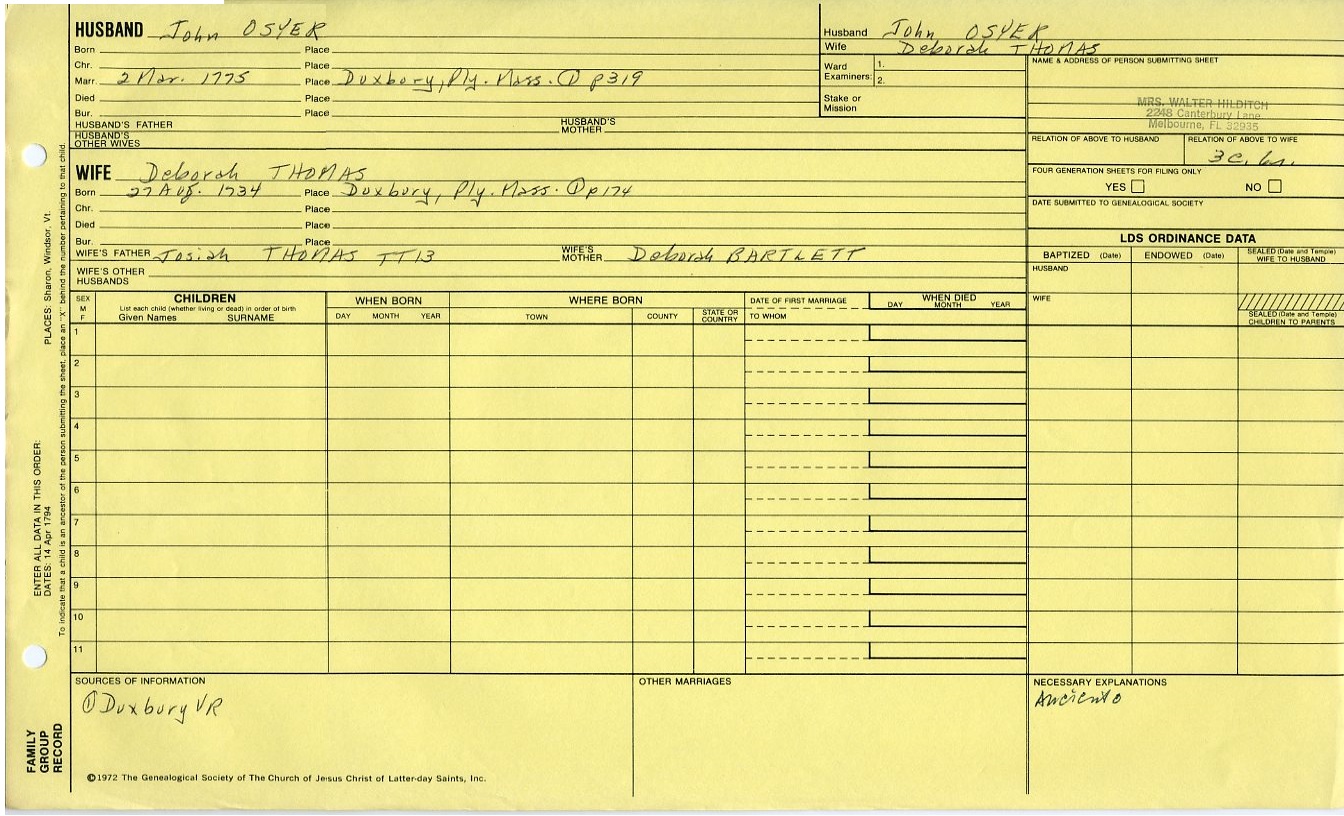 HUSBAND John OSYER
Born Place
Chr. Place
Marr. 2 Mar. 1775 Place Duxbury, Ply. Mass. ① p319
Died Place
Bur. Place
HUSBAND'S FATHER HUSBAND'S MOTHER
HUSBAND'S OTHER WIVES
Husband John OSYER
Wife Deborah THOMAS
Ward Examiners: 1.
2.
Stake or Mission
NAME & ADDRESS OF PERSON SUBMITTING SHEET
MRS. WALTER HILDITCH
2248 Canterbury Lane
Melbourne, FL 32935
RELATION OF ABOVE TO HUSBAND RELATION OF ABOVE TO WIFE
3c.
FOUR GENERATION SHEETS FOR FILING ONLY
YES NO
DATE SUBMITTED TO GENEALOGICAL SOCIETY
WIFE Deborah THOMAS
Born 27 Aug. 1734 Place Duxbury, Ply. Mass. ① p174
Chr. Place
Died Place
Bur. Place
WIFE'S FATHER Josiah THOMAS TT13 WIFE'S MOTHER Deborah BARTLETT
WIFE'S OTHER HUSBANDS
LDS ORDINANCE DATA
BAPTIZED (Date) ENDOWED (Date) SEALED (Date and Temple) WIFE TO HUSBAND
HUSBAND
WIFE
SEALED (Date and Temple) CHILDREN TO PARENTS
SEX M F
CHILDREN
List each child (whether living or dead) in order of birth
Given Names SURNAME
WHEN BORN
DAY MONTH YEAR
WHERE BORN
TOWN COUNTY STATE OR COUNTRY
DATE OF FIRST MARRIAGE
TO WHOM
WHEN DIED
DAY MONTH YEAR
1
2
3
4
5
6
7
8
9
10
11
SOURCES OF INFORMATION
① Duxbury VR
OTHER MARRIAGES
NECESSARY EXPLANATIONS
©1972 The Genealogical Society of The Church of Jesus Christ of Latter-day Saints, Inc.
FAMILY GROUP RECORD
ENTER ALL DATA IN THIS ORDER:
DATES: 14 Apr 1794 PLACES: Sharon, Windsor, Vt.
To indicate that a child is an ancestor of the person submitting the sheet, place an "X" behind the number pertaining to that child.